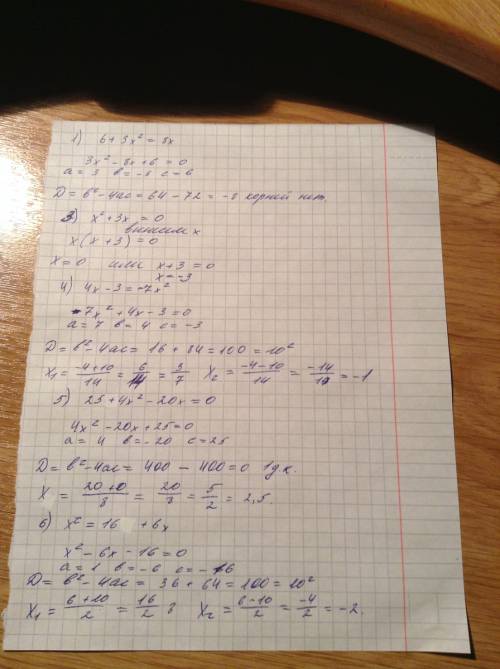 1) 6 + 3x² = 8x
3x² - 8x + 6 = 0
a = 3 в = -8 c = 6
D = в² - 4ac = 64 - 72 = -8 корней нет.
3) x² + 3x = 0
вынесим x
x(x + 3) = 0
x = 0 или x + 3 = 0
x = -3
4) 4x - 3 = -7x²
7x² + 4x - 3 = 0
a = 7 в = 4 c = -3
D = в² - 4ac = 16 + 84 = 100 = 10²
x₁ = (-4+10)/14 = 6/14 = 3/7 x₂ = (-4-10)/14 = -14/14 = -1
5) 25 + 4x² - 20x = 0
4x² - 20x + 25 = 0
a = 4 в = -20 c = 25
D = в² - 4ac = 400 - 400 = 0 1 д.к.
X = (20+0)/8 = 20/8 = 5/2 = 2,5.
6) x² = 16 + 6x
x² - 6x - 16 = 0
a = 1 в = -6 c = -16
D = в² - 4ac = 36 + 64 = 100 = 10²
X₁ = (6+10)/2 = 16/2 = 8 X₂ = (6-10)/2 = -4/2 = -2.